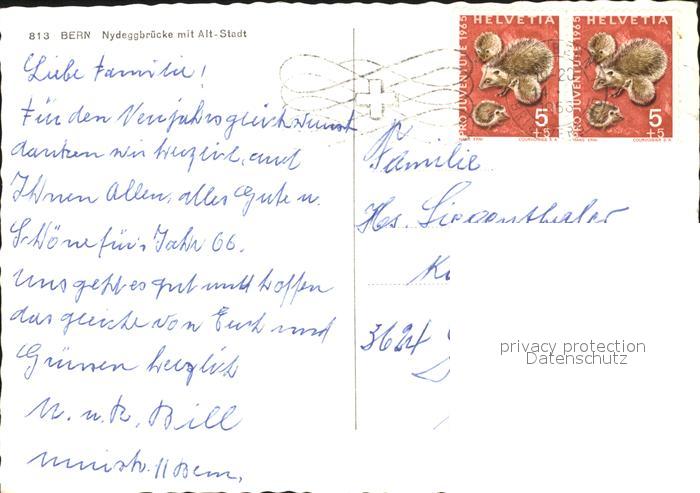 813 BERN Nydeggbrücke mit Alt-Stadt
Liebe Familie!
Für den Neujahrsgleichwunsch
danken wir herzlich, und
Ihnen Allen, alles Gute u.
Schöne für's Jahr 66.
Uns geht es gut und hoffen
das gleiche von Euch und
Grüssen herzlich
Bill
11 Bern.
HELVETIA HELVETIA
PRO JUVENTUTE 1965
PRO JUVENTUTE 1965
5 5
+5 +5
COURVOISIER S.A. COURVOISIER S.A.
Familie
Hs. Siegenthaler
3624
privacy protection
Datenschutz